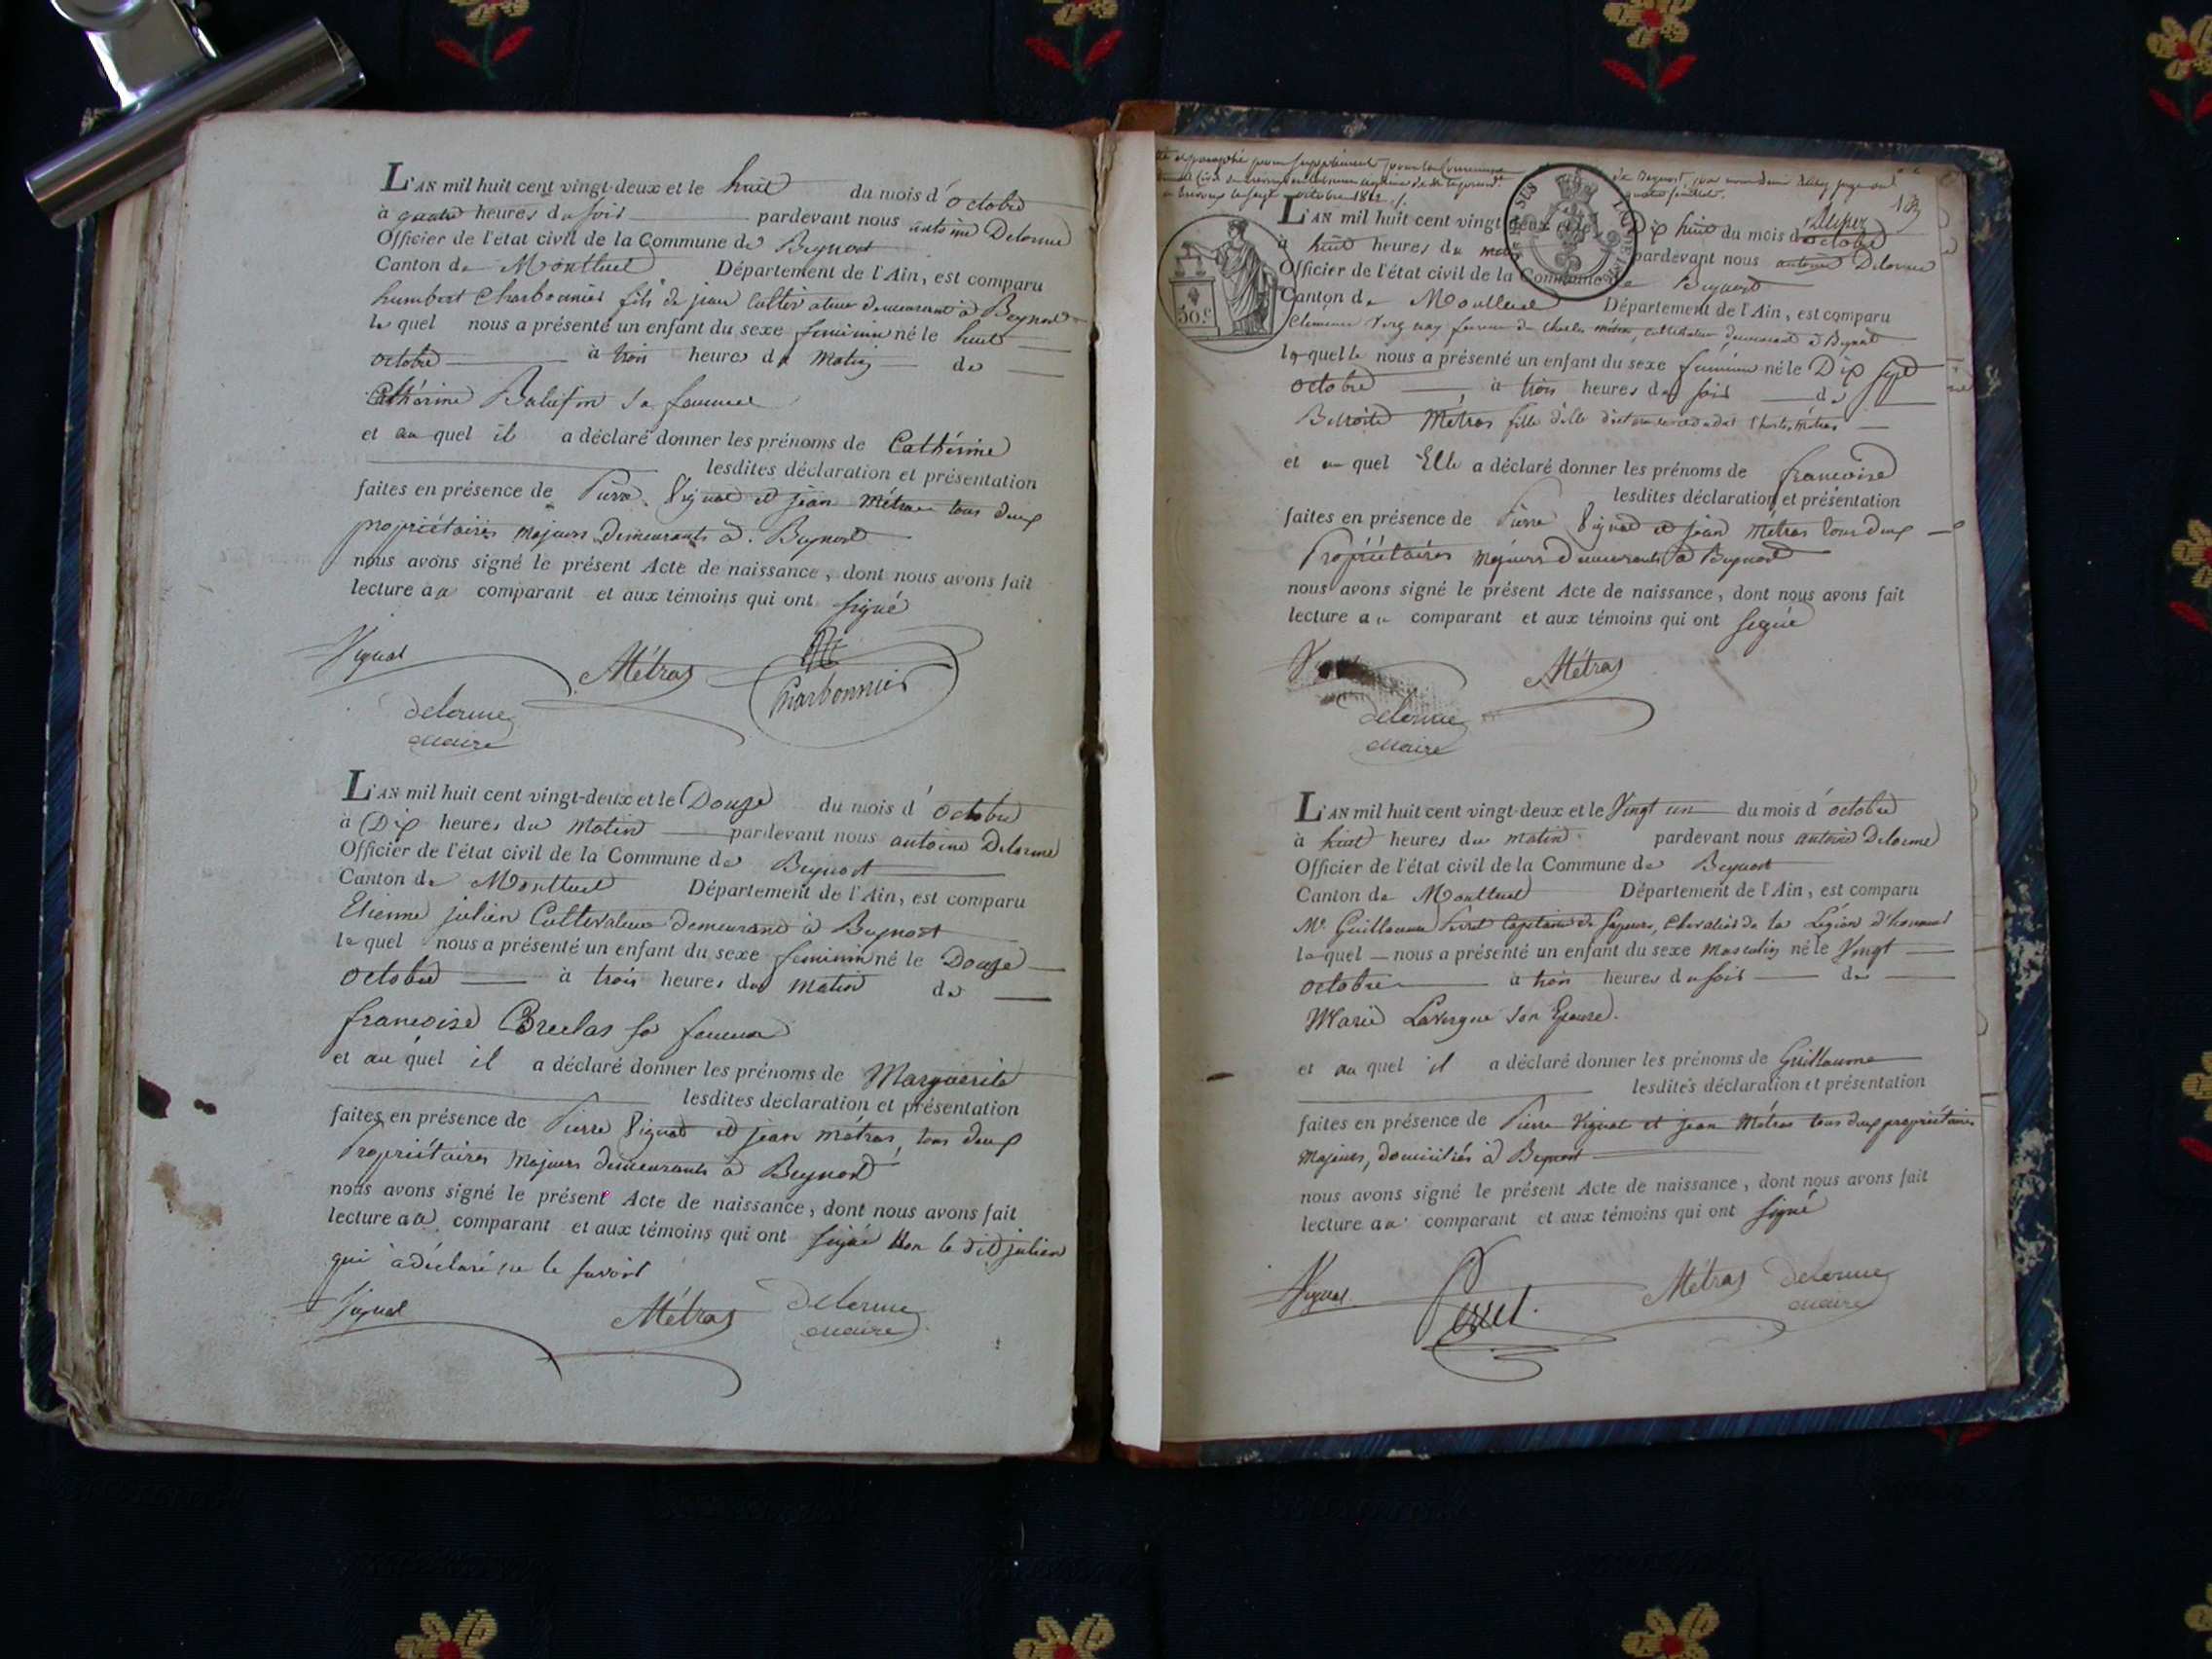 L'AN mil huit cent vingt-deux et le huit du mois d'octobre
à quatre heures du soir pardevant nous antoine Delorme
Officier de l'état civil de la Commune de Beynost
Canton de Montluel Département de l'Ain, est comparu
humbert Charbonnier fils de jean Cultivateur demeurant à Beynost
le quel nous a présenté un enfant du sexe feminin né le huit
octobre à trois heures du matin de
Cathérine sa femme
et au quel il a déclaré donner les prénoms de Cathérine
lesdites déclaration et présentation
faites en présence de Pierre Vignat et jean Métras tous deux
propriétaires majeurs demeurants à Beynost
nous avons signé le présent Acte de naissance, dont nous avons fait
lecture au comparant et aux témoins qui ont signé
Vignat Métras Charbonnier
delorme
maire
L'AN mil huit cent vingt-deux et le Douze du mois d'octobre
à Dix heures du matin pardevant nous antoine Delorme
Officier de l'état civil de la Commune de Beynost
Canton de Montluel Département de l'Ain, est comparu
Etienne julien Cultivateur demeurant à Beynost
le quel nous a présenté un enfant du sexe feminin né le Douze
octobre à trois heures du matin de
francoise sa femme
et au quel il a déclaré donner les prénoms de Marguerite
lesdites déclaration et présentation
faites en présence de Pierre Vignat et jean métras, tous deux
Propriétaires majeurs demeurants à Beynost
nous avons signé le présent Acte de naissance, dont nous avons fait
lecture au comparant et aux témoins qui ont signé non le dit julien
qui à déclaré ne le savoir
Vignat Métras Delorme
maire
L'AN mil huit cent vingt-deux et le Dix huit du mois d'octobre
à huit heures du matin pardevant nous antoine Delorme
Officier de l'état civil de la Commune de Beynost
Canton de Montluel Département de l'Ain, est comparu
Clemence femme de Charles métras, cultivateur, demeurant à Beynost
laquelle nous a présenté un enfant du sexe feminin né le Dix sept
octobre à trois heures du soir de
Métras fille d'elle Charles métras
et au quel Elle a déclaré donner les prénoms de francoise
lesdites déclaration et présentation
faites en présence de Pierre Vignat et jean Métras tous deux
Propriétaires majeurs demeurants à Beynost
nous avons signé le présent Acte de naissance, dont nous avons fait
lecture au comparant et aux témoins qui ont signé
Métras
delorme
maire
L'AN mil huit cent vingt-deux et le Vingt un du mois d'octobre
à huit heures du matin pardevant nous antoine Delorme
Officier de l'état civil de la Commune de Beynost
Canton de Montluel Département de l'Ain, est comparu
Mr. Guillaume Perret Capitaine de Sapeurs, Chevalier de la Légion d'honneur
le quel nous a présenté un enfant du sexe Masculin né le Vingt
octobre à trois heures du soir de
Marie Lavergne son Epouse.
et au quel il a déclaré donner les prénoms de Guillaume
lesdites déclaration et présentation
faites en présence de Pierre Vignat et jean Métras tous deux propriétaires
Majeurs, domiciliés à Beynost
nous avons signé le présent Acte de naissance, dont nous avons fait
lecture au comparant et aux témoins qui ont signé
Vignat Perret. Métras Delorme
maire